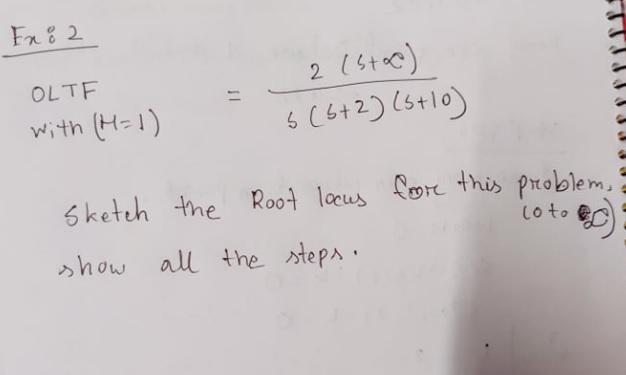 Ex: 2
OLTF
with (H=1)
= 2 (s+∝) / s (s+2) (s+10)
Sketch the Root locus for this problem,
(0 to ∝)
show all the steps.